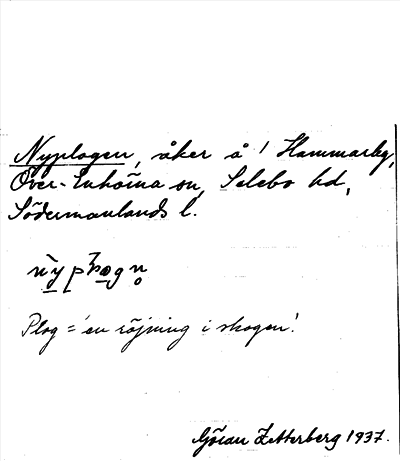 Nyplogen, åker å 1 Hammarby,
Över-Enhörna sn, Selebo hd,
Södermanlands l.
Plog = 'en röjning i skogen'.
Göran Zetterberg 1937.